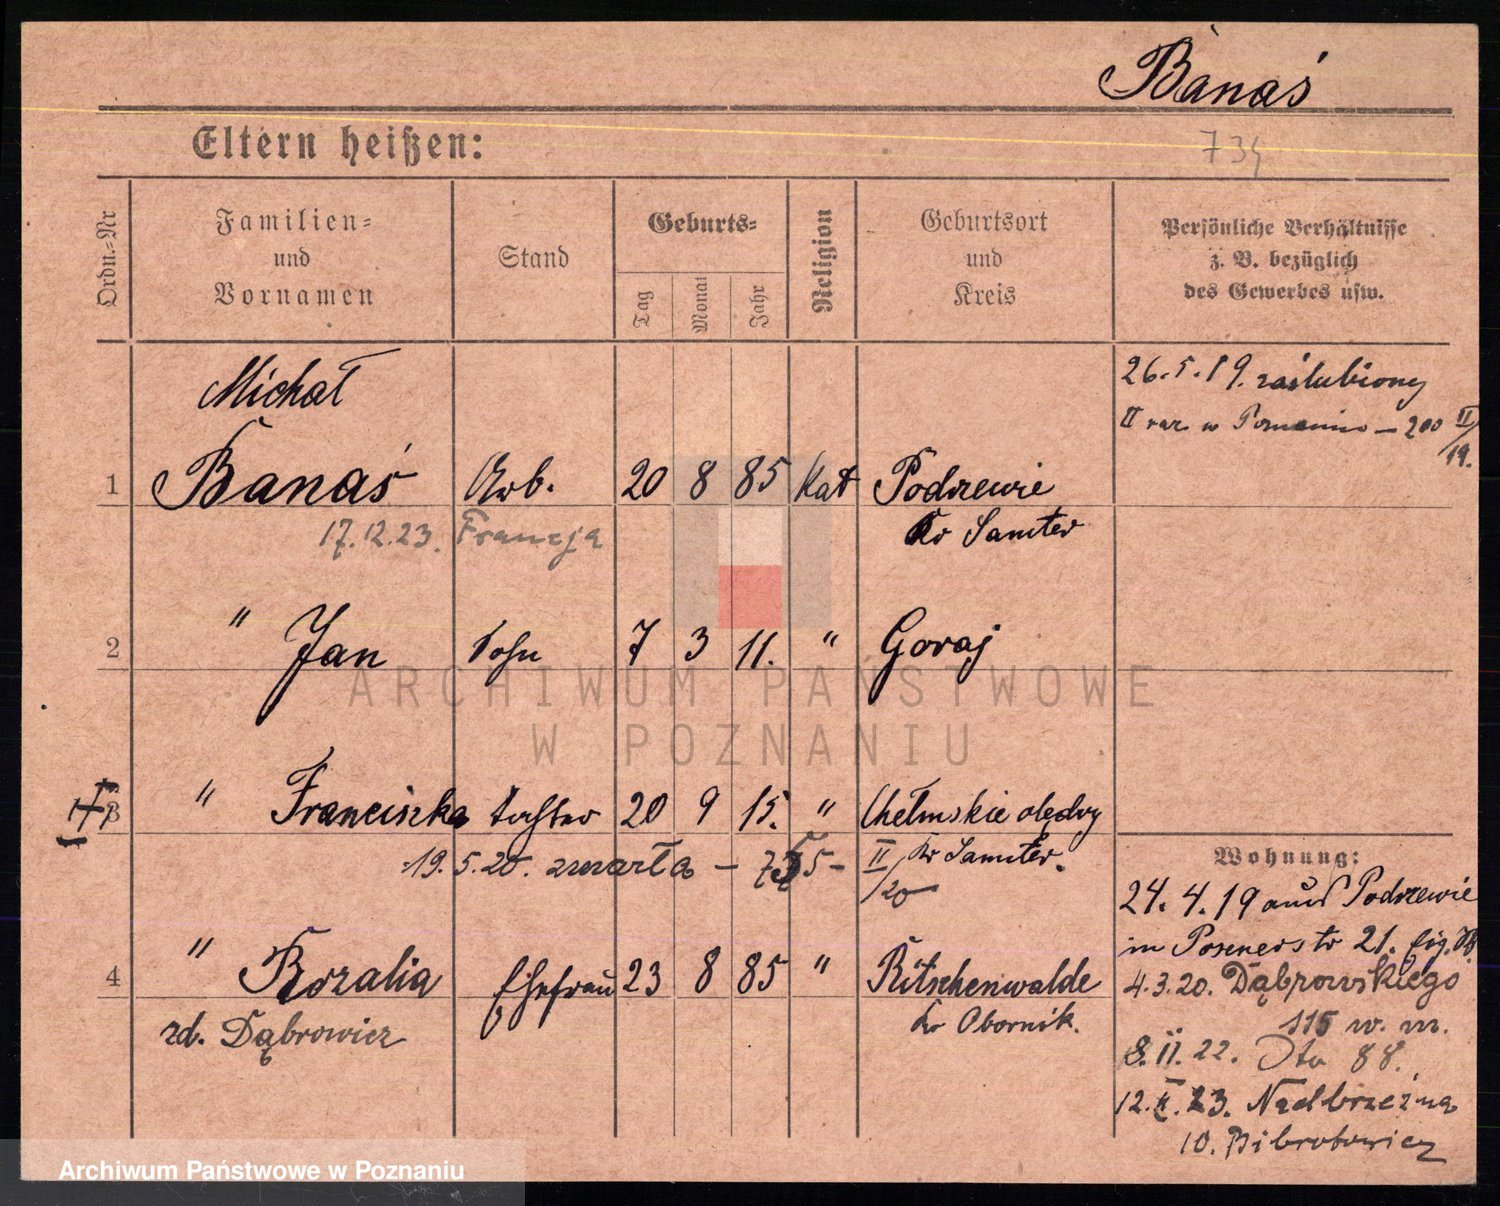 Banaś
Eltern heißen:
734
Ordn.-Nr
Familien-
und
Vornamen
Stand
Geburts-
Tag
Monat
Jahr
Religion
Geburtsort
und
Kreis
Persönliche Verhältnisse
z. B. bezüglich
des Gewerbes usw.
Michał
1 Banaś Arb. 20 8 85 Kat Podrzewie
Kr Samter
17.12.23. Francja
26.5.19. zaślubiony
II raz w Poznaniu — 200 II/19.
2 " Jan Sohn 7 3 11. " Goraj
3 " Franciszka Tochter 20 9 15. " Chełmskie olędry
Kr Samter.
19.5.20. zmarła — II/20
4 " Rozalia Ehefrau 23 8 85 " Ritschenwalde
Kr Obornik.
zd. Dąbrowicz
Wohnung:
24.4.19 aus Podrzewie
in Posenerstr 21.
4.3.20. Dąbrowskiego
115 w. m.
8.II.22. Ita 88.
12.II.23. Nadbrzeżna
10. Bibrotowicz
ARCHIWUM PAŃSTWOWE
W POZNANIU
Archiwum Państwowe w Poznaniu